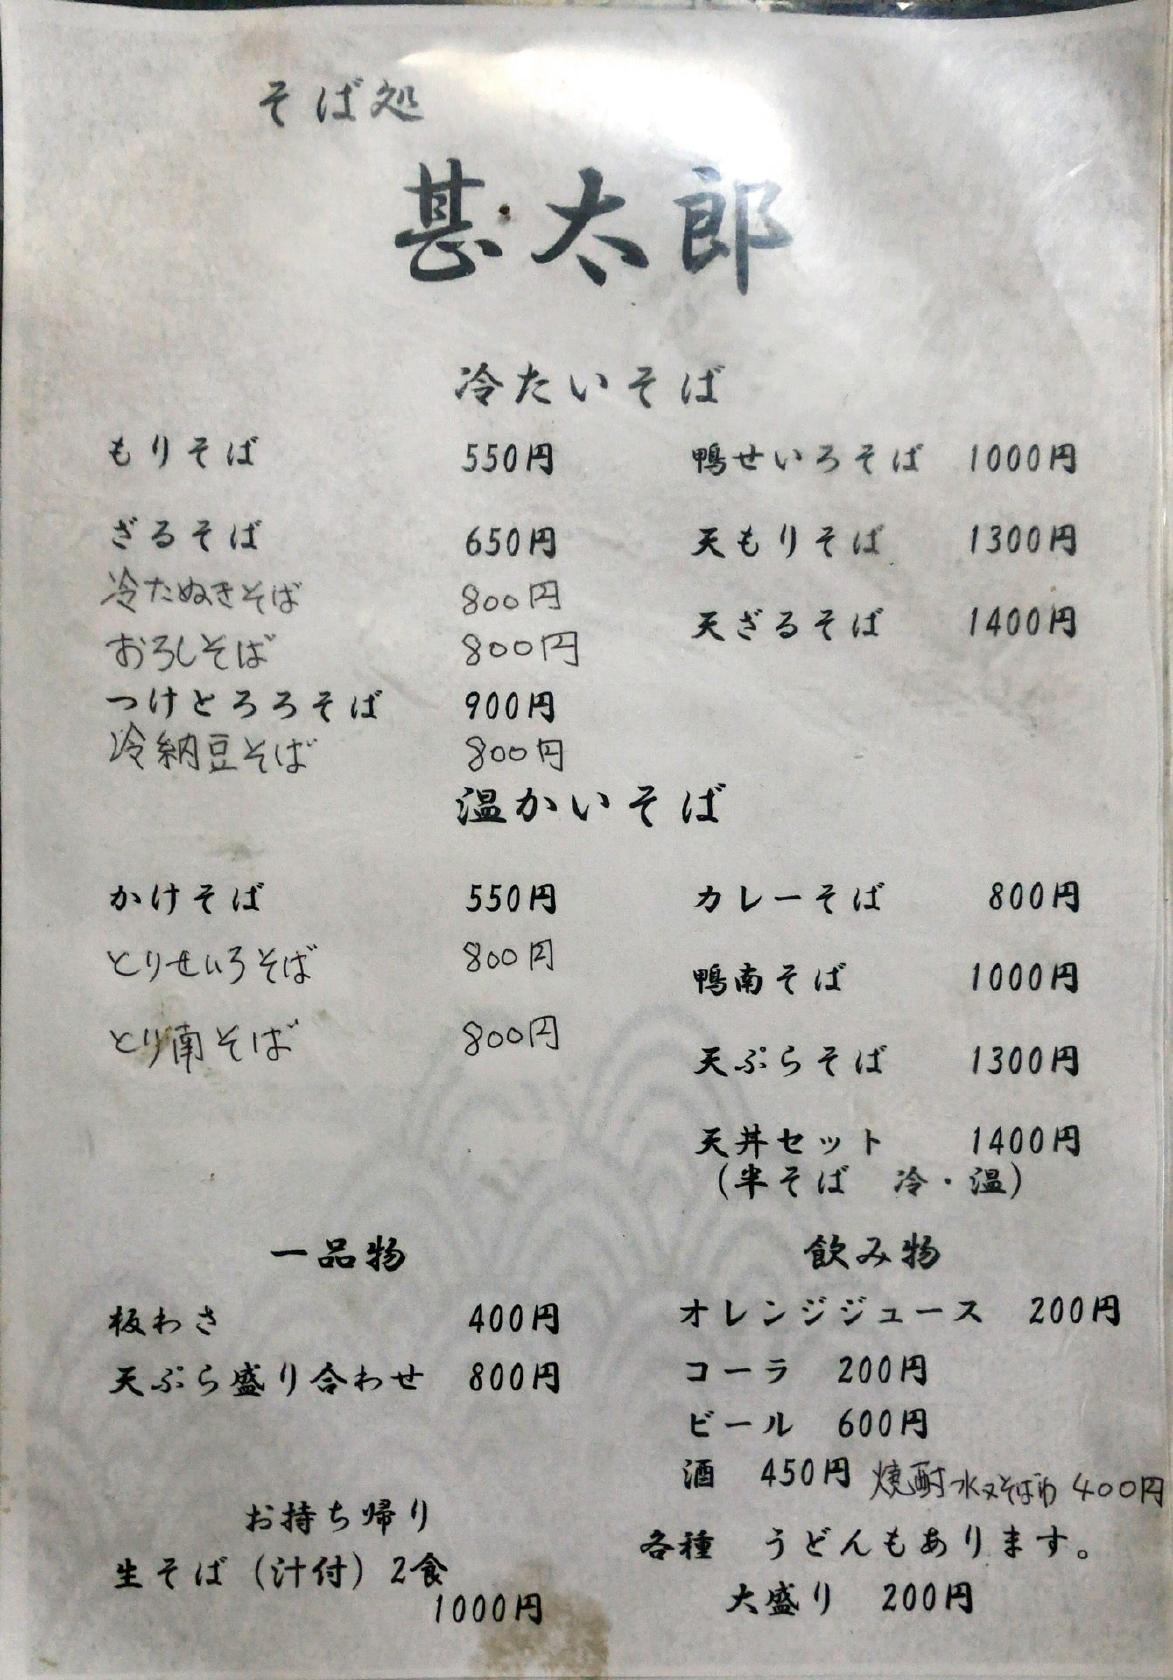 そば処
甚太郎
冷たいそば
もりそば 550円
ざるそば 650円
冷たぬきそば 800円
おろしそば 800円
つけとろろそば 900円
冷納豆そば 800円
鴨せいろそば 1000円
天もりそば 1300円
天ざるそば 1400円
温かいそば
かけそば 550円
とりせいろそば 800円
とり南そば 800円
カレーそば 800円
鴨南そば 1000円
天ぷらそば 1300円
天丼セット 1400円
(半そば 冷・温)
一品物
板わさ 400円
天ぷら盛り合わせ 800円
お持ち帰り
生そば(汁付) 2食
1000円
飲み物
オレンジジュース 200円
コーラ 200円
ビール 600円
酒 450円 焼酎 水又そばゆ 400円
各種 うどんもあります。
大盛り 200円